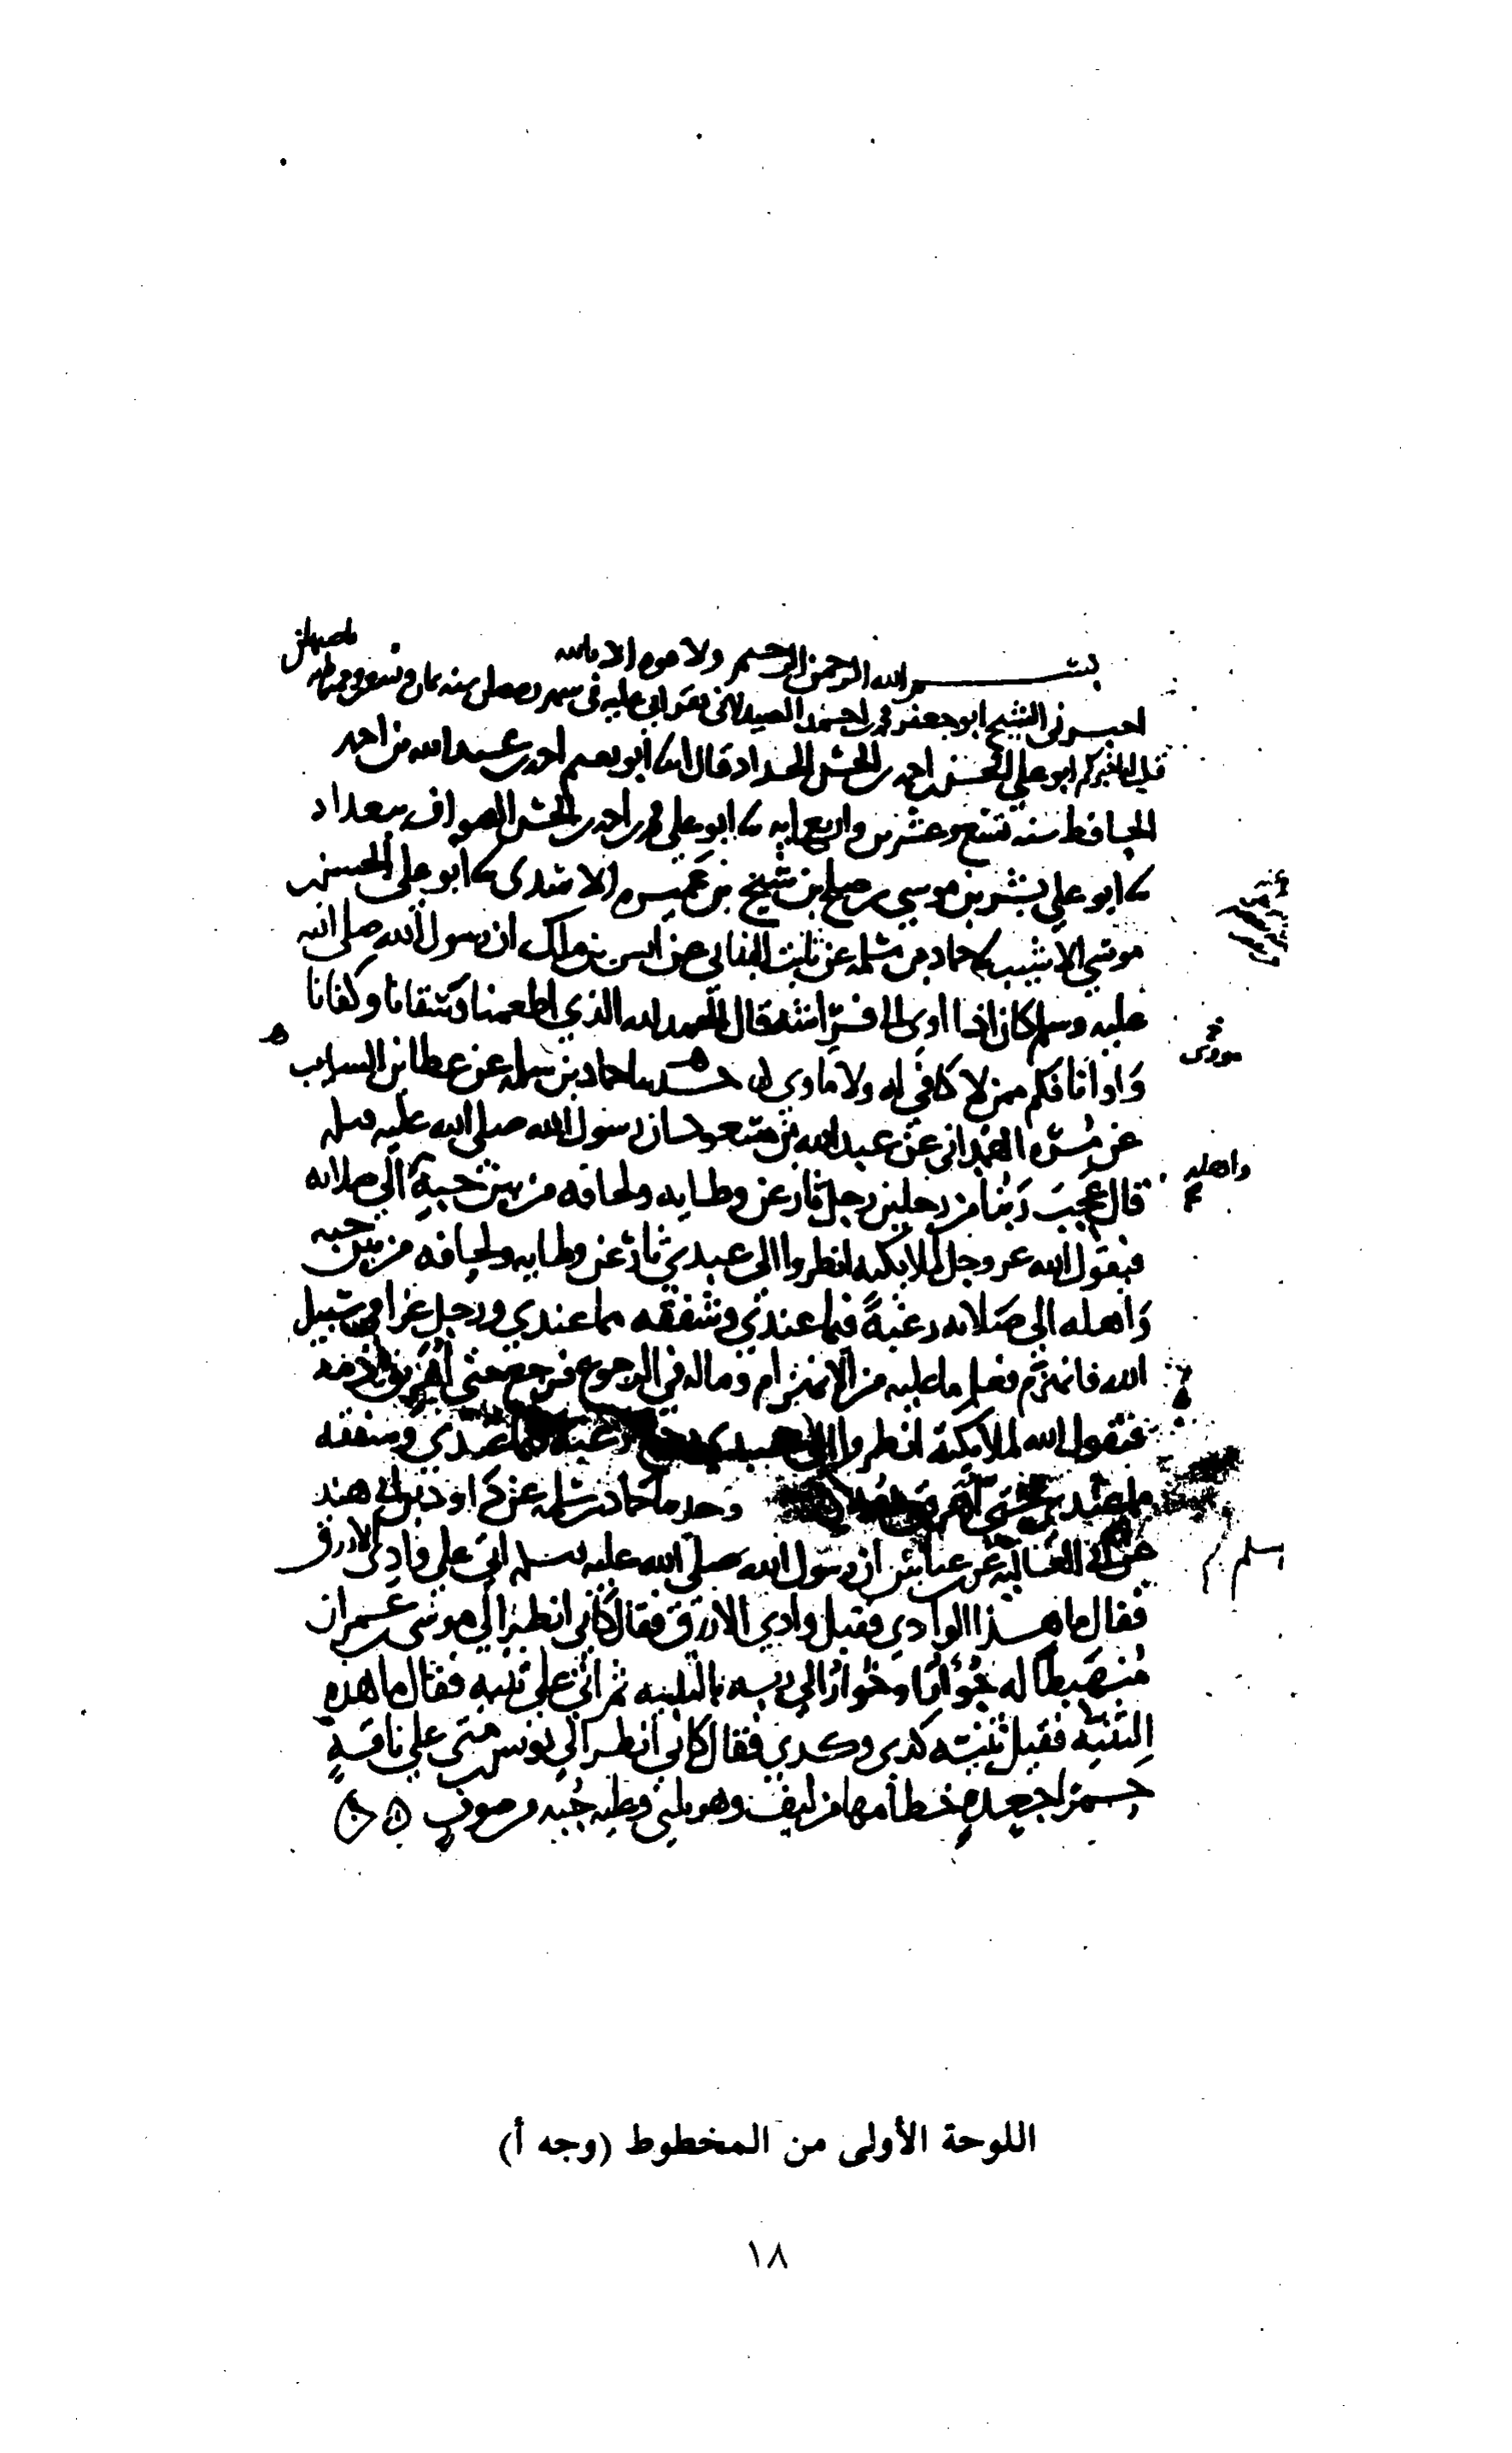 بسم الله الرحمن الرحيم ولا قوة الا بالله
اخبرني الشيخ ابو جعفر محمد بن احمد الصيدلاني بقراتي عليه في شهر رمضان سنة ثمان وتسعين وخمسمائة باصبهان
قيل له اخبركم ابو علي الحسن بن احمد بن الحسن الحداد قال انا ابو نعيم احمد بن عبد الله بن احمد
الحافظ سنة تسع وعشرين واربعمايه نا ابو علي محمد بن احمد بن الحسن الصواف ببغداد
نا ابو علي بشر بن موسى بن صلح بن شيخ بن عميره الاسدي نا ابو علي الحسن بن
موسى الاشيب نا حماد بن سلمه عن ثابت البناني عن انس بن ملك ان رسول الله صلى الله
عليه وسلم كان اذا اوى الى فراشه قال الحمد لله الذي اطعمنا وسقانا وكفانا
وَاوانا فكم ممن لا كافي له ولا ماوى له حدثنا حماد بن سلمه عن عطا بن السايب
عن مُره الهَمداني عن عبد الله بن مسعود ان رسول الله صلى الله عليه وسلم
قال عَجِبَ رَبُنا من رجلين رجل ثار عن وطايه ولحافه من بين حبه الى صلاته
واهله
فيقول الله عز وجل لملايكته انظروا الى عبدي ثار عن وطايه ولحافه من بين حبه
وَاهله الى صَلاته رغبةً فيما عندي وشفقه مما عندي ورجل غزا في سبيل
الله فانهزم فعلم ما عليه من الانهزام وماله في الرجوع فرجع حتى اُهريق دمه
فيقول الله لملايكته انظروا الى عبدي رجع رغبة فيما عندي وشفقه
مما عندي حتى اُهريق دمه وحدثنا حماد بن سلمه عن داود بن ابي هند
عن ابي العاليه عن ابن عباس ان رسول الله صلى الله عليه وسلم اتى على وادي الازرق
فقال ما هذا الوادي فقيل وادي الازرق فقال كاني انظر الى موسى بن عمران
مُنهَبِطًا له جُؤَارٌ الى ربه بالتلبيه ثم اتى على ثنيه فقال ما هذه
الثنيه فقيل ثنيه كدى وكدى فقال كاني انظر الى يونس بن متى على ناقةٍ
حمرا جعدهٍ خطامها من ليف وهو يلبي وعليه جُبه من صوفٍ
اللوحة الأولى من المخطوط (وجه أ)
١٨